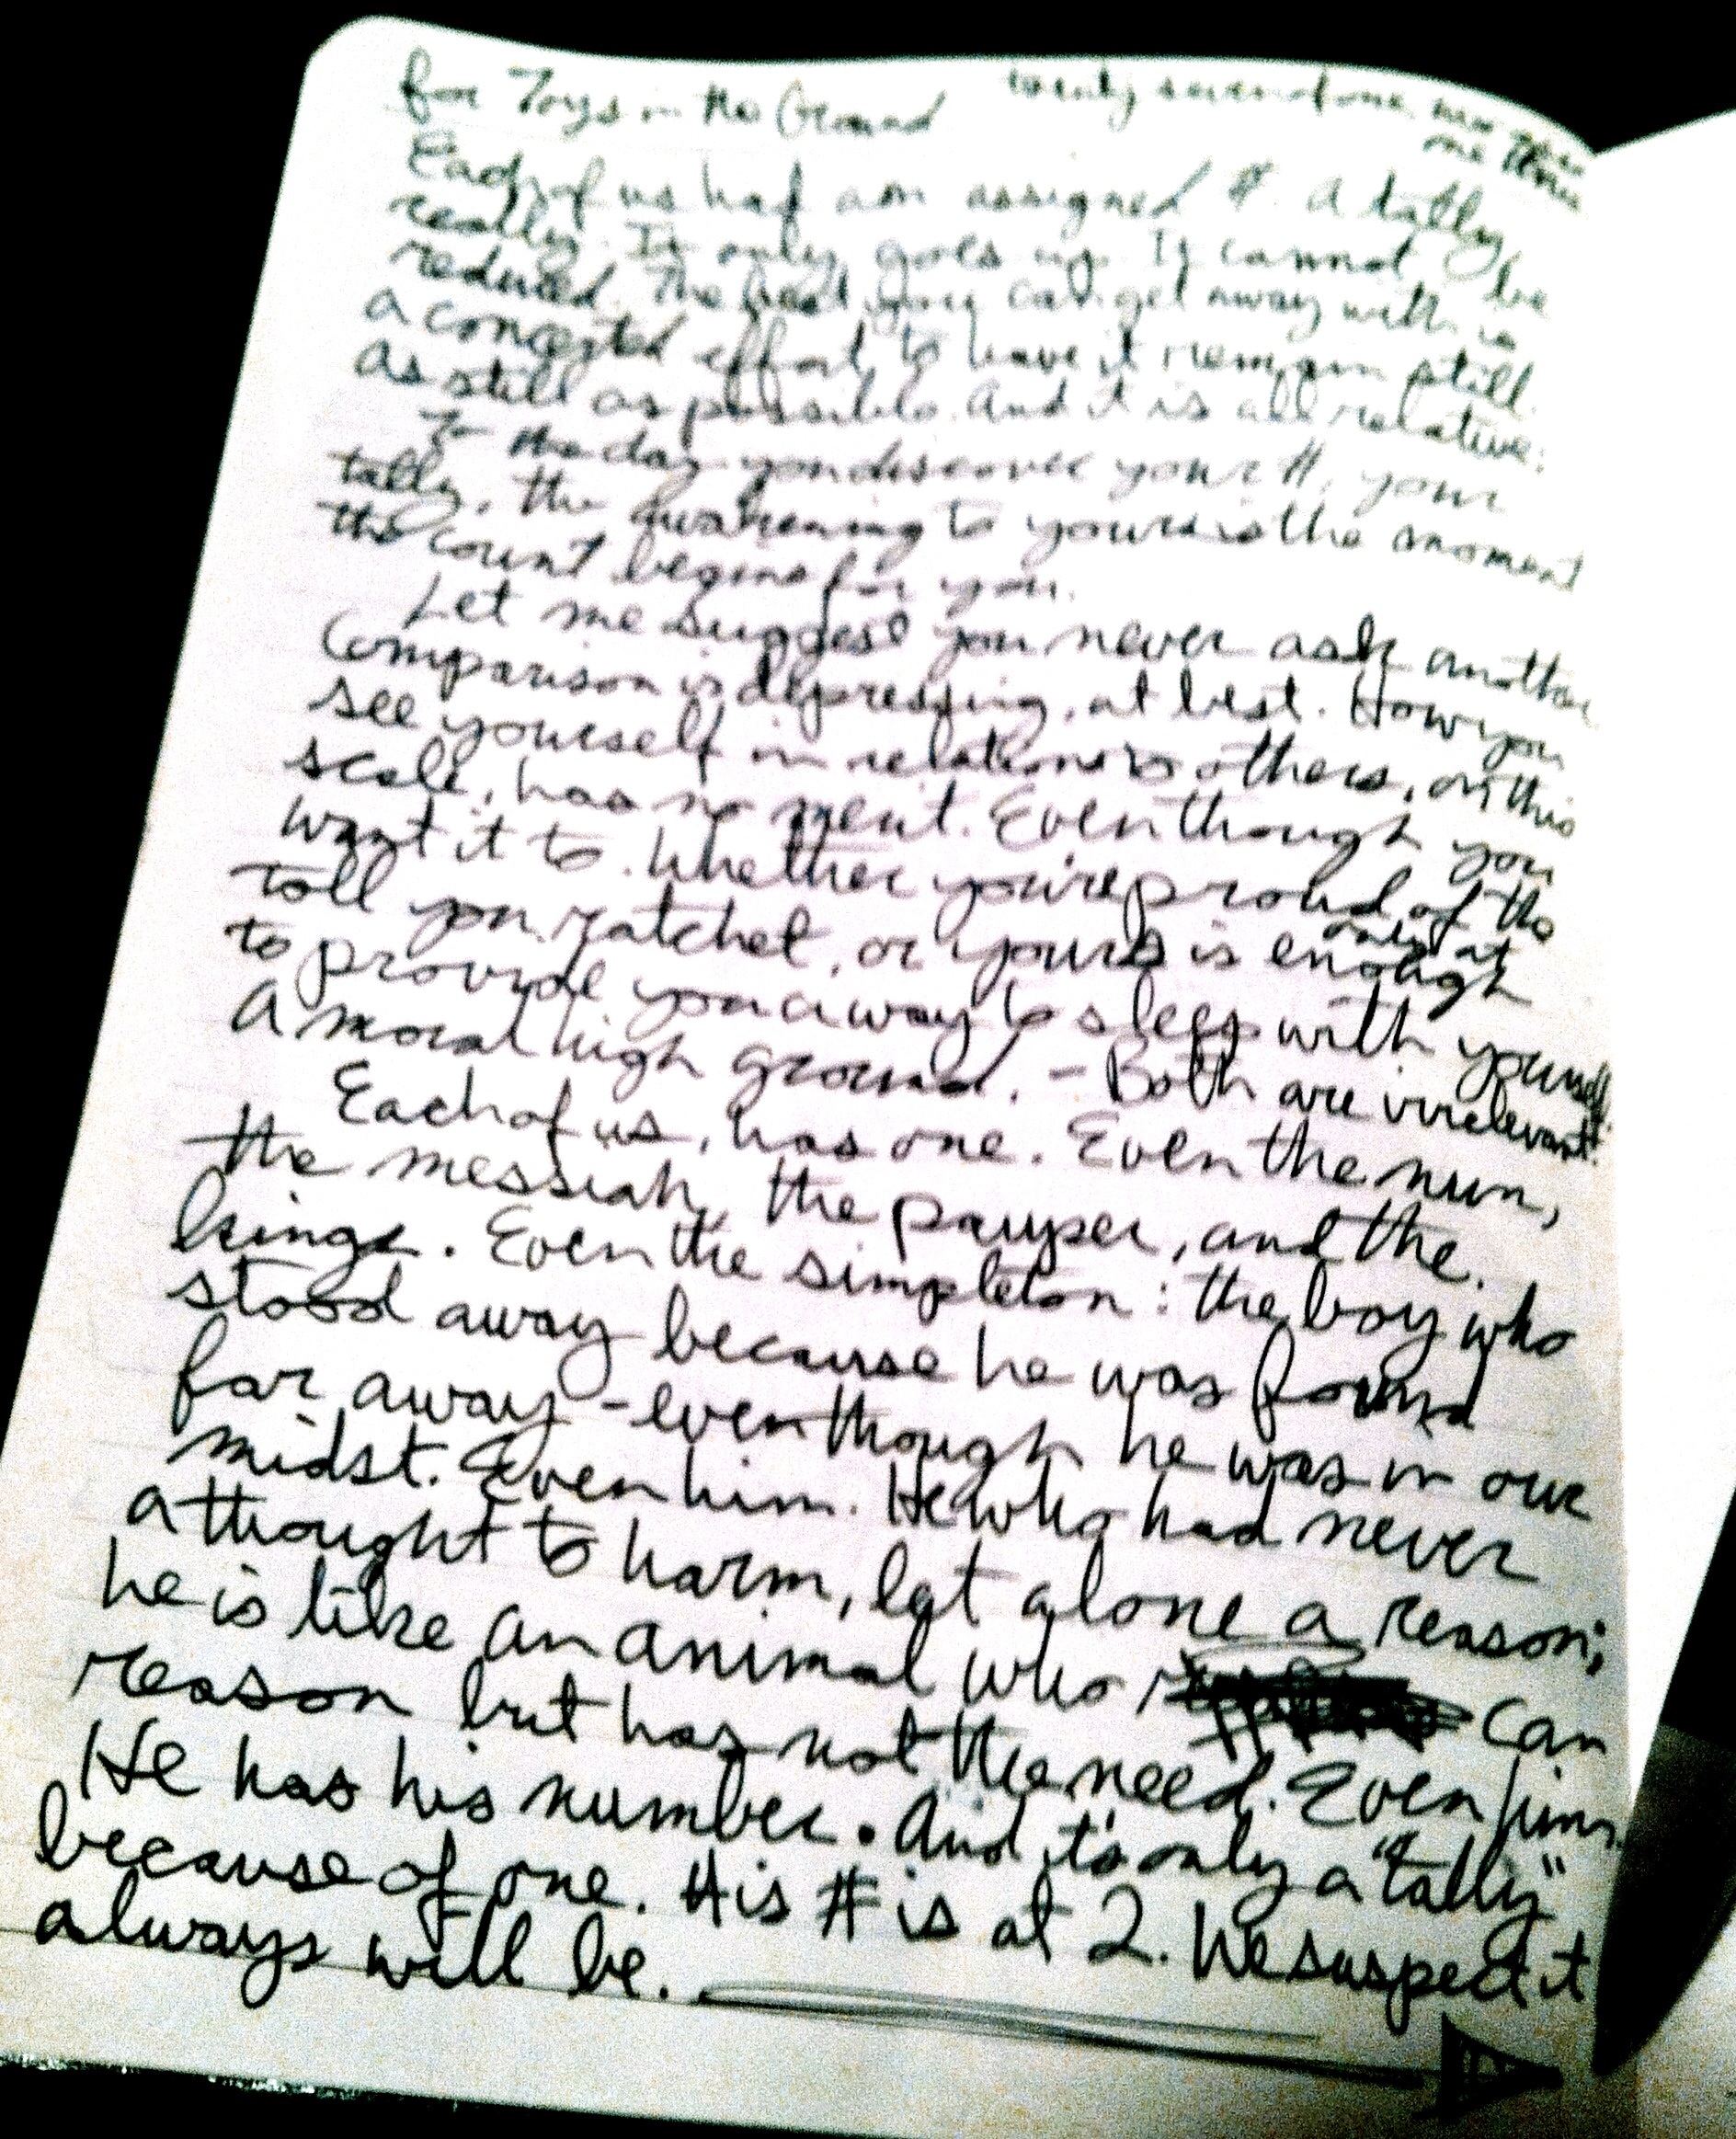 for Toys in the Ground
twenty seven of one
Each of us had an assigned #. A tally
really. It only goes up. It cannot be
reduced. The best you can get away with is
a concerted effort to have it remain still.
As still as possible. And it is all relative.
To the day you discover your #, your
tally, the awakening to yours is the moment
the count begins for you.
Let me suggest you never ask another
Comparison is depressing, at best. How you
see yourself in relation to others, on this
scale, has no merit. Even though you
want it to. Whether you're proud of the
toll you ratchet, or yours is only at enough
to provide you a way to sleep with yourself
A moral high ground. - Both are irrelevant.
Each of us, has one. Even the nun,
the messiah, the pauper, and the
kings. Even the simpleton: the boy who
stood away because he was found
far away - even though he was in our
midst. Even him. He who had never
a thought to harm, let alone a reason;
he is like an animal who can
reason but has not the need. Even him.
He has his number. And it's only a "tally"
because of one. His # is at 2. We suspect it
always will be.